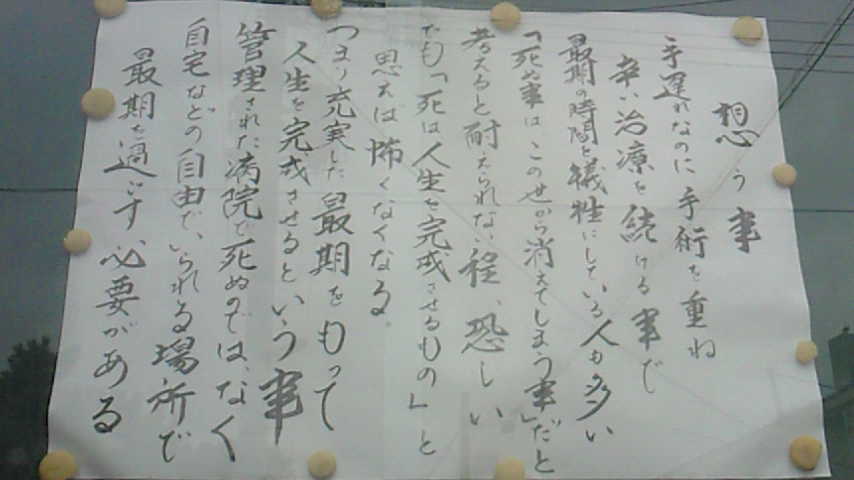 想う事
手遅れなのに手術を重ね
辛い治療を続ける事で
最期の時間を犠牲にしている人も多い
「死ぬ事は、この世から消えてしまう事」だと
考えると耐えられない程、恐しい
でも「死は人生を完成させるもの」と
思えば怖くなくなる。
つまり充実した最期をもって
人生を完成させるという事
管理された病院で死ぬのでは、なく
自宅などの自由で、いられる場所で
最期を過ごす必要がある